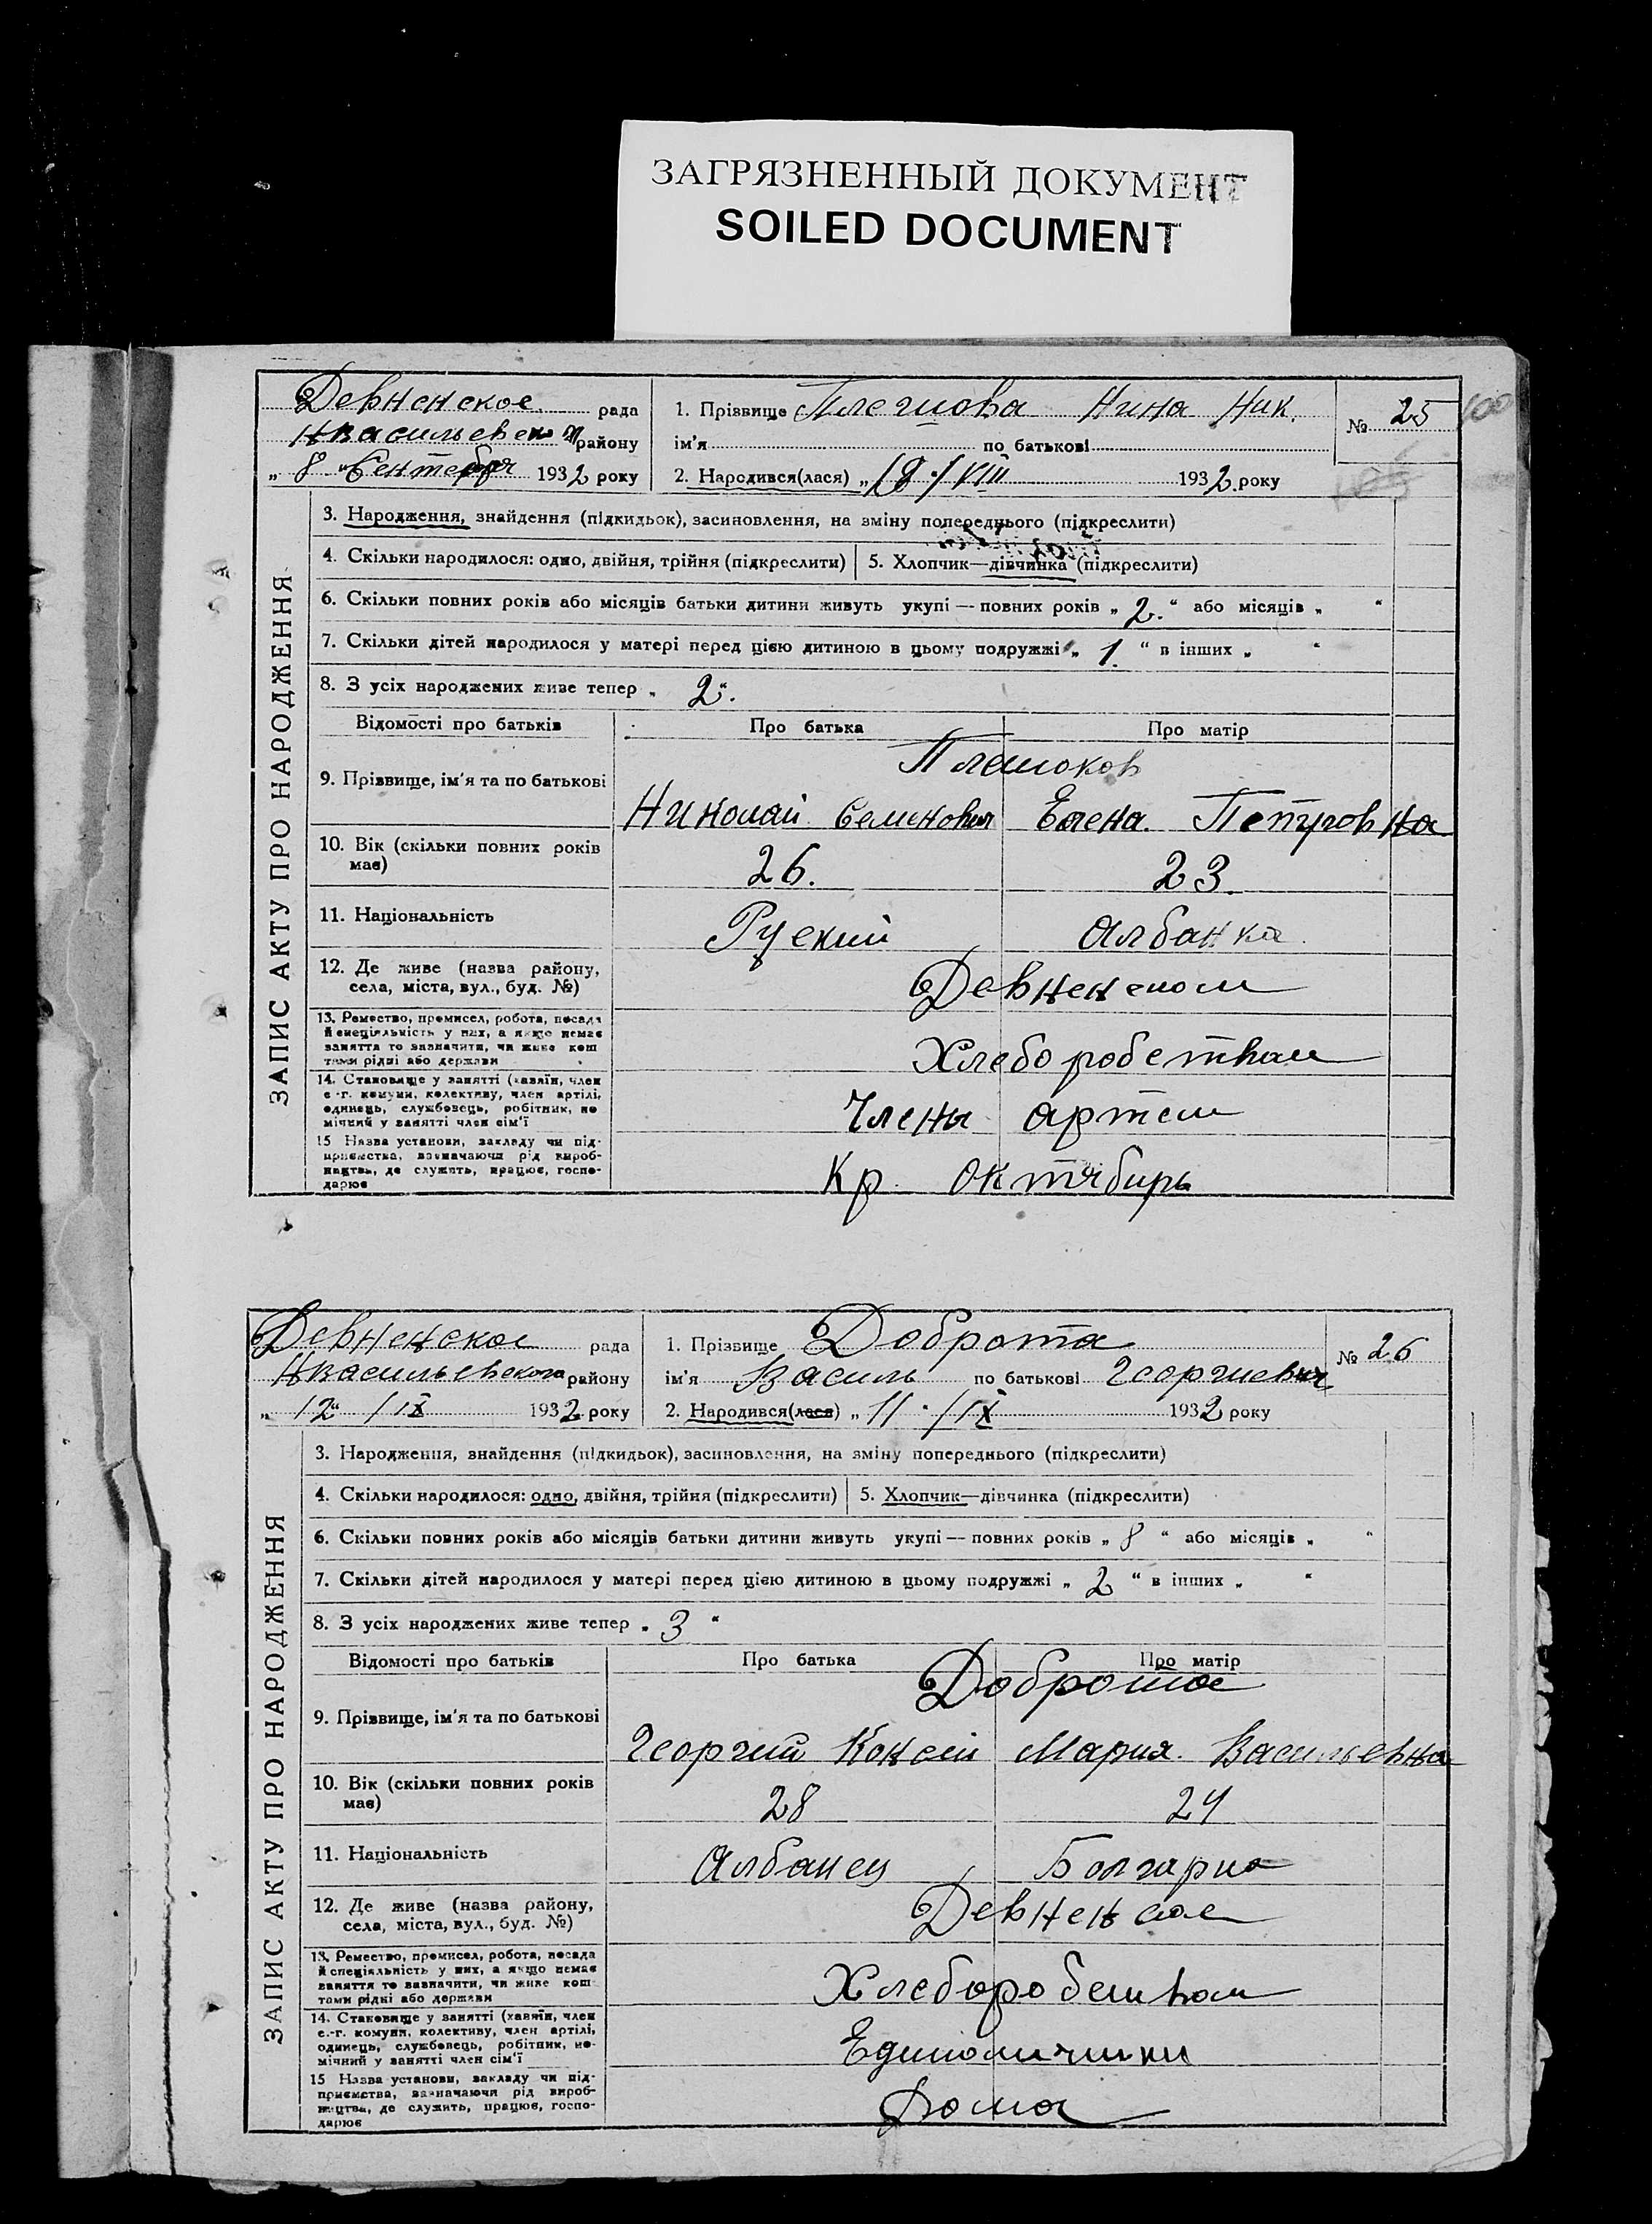 ЗАГРЯЗНЕННЫЙ ДОКУМЕНТ
SOILED DOCUMENT
Девненское рада
района
„ 8 " Сентебря 1932 року
1. Прізвище Нина Ник.
ім'я по батькові
2. Народився(лася) „18./VIII 1932 року
№ 25
100
ЗАПИС АКТУ ПРО НАРОДЖЕННЯ
3. Народження, знайдення (підкидьок), засиновлення, на зміну попереднього (підкреслити)
4. Скільки народилося: одно, двійня, трійня (підкреслити)
5. Хлопчик—дівчинка (підкреслити)
6. Скільки повних років або місяців батьки дитини живуть укупі — повних років „ 2. " або місяців „ "
7. Скільки дітей народилося у матері перед цією дитиною в цьому подружжі „ 1. " в інших „ "
8. З усіх народжених живе тепер „ 2".
Відомості про батьків Про батька Про матір
9. Прізвище, ім'я та по батькові
Николай Семенович Елена Петровна
10. Вік (скільки повних років має) 26. 23.
11. Національність Руский Албанка
12. Де живе (назва району, села, міста, вул., буд. №) Девненском
13. Ремество, промисел, робота, посада й спеціяльність у них, а якщо немає заняття то зазначити, чи живе коштами рідні або держави
Хлеборобством
14. Становище у занятті (хазяїн, член с.-г. комуни, колективу, член артілі, одинець, службовець, робітник, помічний у занятті член сім'ї
Члены артели
15 Назва установи, закладу чи підприємства, зазначаючи рід виробництва, де служить, працює, господарює
Кр. Октябирь
Девненское рада
Нвасильевского району
„ 12" /IX 1932 року
1. Прізвище Доброта
ім'я Василь по батькові Георгиевич
2. Народився(лася) „ 11./IX 1932 року
№ 26
ЗАПИС АКТУ ПРО НАРОДЖЕННЯ
3. Народження, знайдення (підкидьок), засиновлення, на зміну попереднього (підкреслити)
4. Скільки народилося: одно, двійня, трійня (підкреслити)
5. Хлопчик—дівчинка (підкреслити)
6. Скільки повних років або місяців батьки дитини живуть укупі — повних років „ 8 " або місяців „ "
7. Скільки дітей народилося у матері перед цією дитиною в цьому подружжі „ 2 " в інших „ "
8. З усіх народжених живе тепер „ 3 "
Відомості про батьків Про батька Про матір
Доброта
9. Прізвище, ім'я та по батькові
Георгий Мария Васильевна
10. Вік (скільки повних років має) 28 24
11. Національність Албанец Болгарка
12. Де живе (назва району, села, міста, вул., буд. №) Девненское
13. Ремество, промисел, робота, посада й спеціяльність у них, а якщо немає заняття то зазначити, чи живе коштами рідні або держави
Хлеборобством
14. Становище у занятті (хазяїн, член с.-г. комуни, колективу, член артілі, одинець, службовець, робітник, помічний у занятті член сім'ї
Единоличники
15 Назва установи, закладу чи підприємства, зазначаючи рід виробництва, де служить, працює, господарює
Дома